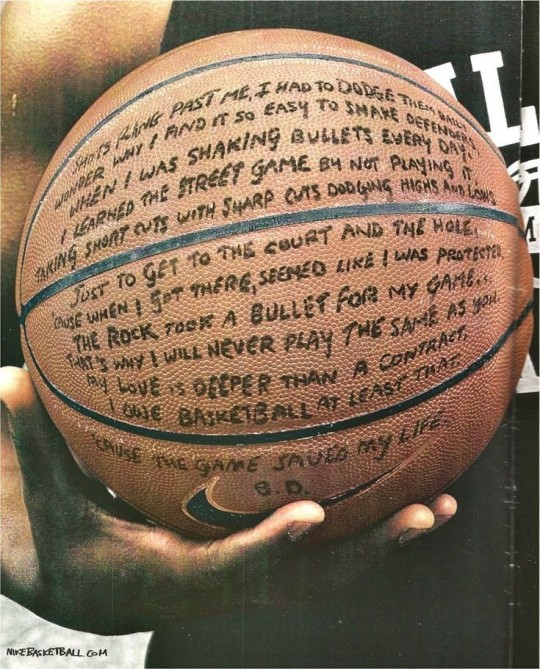 SHOTS FLANG PAST ME, I HAD TO DODGE THEM DAILY.
WONDER WHY I FIND IT SO EASY TO SHAKE DEFENDERS,
WHEN I WAS SHAKING BULLETS EVERY DAY.
I LEARNED THE STREET GAME BY NOT PLAYING IT,
TAKING SHORT CUTS WITH SHARP CUTS DODGING HIGHS AND LOWS
JUST TO GET TO THE COURT AND THE HOLE.
'CAUSE WHEN I GOT THERE, SEEMED LIKE I WAS PROTECTED,
THE ROCK TOOK A BULLET FOR MY GAME...
THAT'S WHY I WILL NEVER PLAY THE SAME AS YOU.
MY LOVE IS DEEPER THAN A CONTRACT,
I OWE BASKETBALL AT LEAST THAT.
'CAUSE THE GAME SAVED MY LIFE.
B.D.
NIKEBASKETBALL.COM